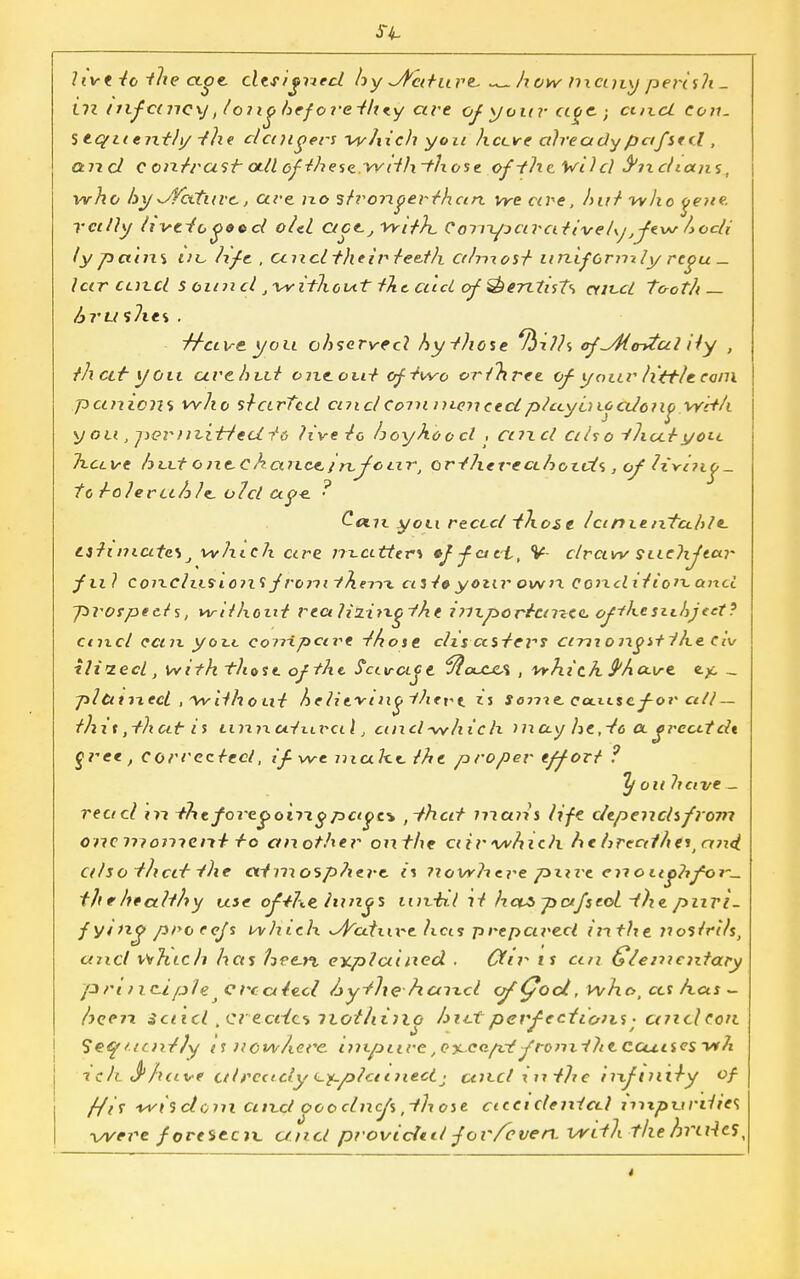 54
live to the age designed by Nature — how many perish
in infancy, long before they are of your age; and con-
sequently the dangers which you have already passed,
and contrast all of these with those of the Wild Indians,
who by Nature, are no stronger than we are, but who gene
rally live to good old age, with Comparatively, few bodi
ly pains in life, and their teeth almost uniformly regu-
lar and sound, without the aid of Dentists and tooth-
brushes.
Have you observed by those Bills of Mortality,
that you are but one out of two or three of your little com
panions who started and commenced playing along with
you, permitted to live to boyhood, and also that you
have but one chance, in four, or thereabouts, of living
to tolerable old age?
Can you read those lamentable
estimates, which are matters of fact, & draw such fear
ful conclusions from them as to your own condition and
prospects, without realizing the importance of the subject?
and can you compare those disasters amongst the Civ
ilized, with those of the Savage Races, which I have ex-
plained, without believing there is some cause for all—
this, that is unnatural, and which may be, to a great de
gree, corrected, if we make the proper effort?
You have—
read in the foregoing pages, that man's life depends from
one moment to another on the air which he breathes, and
also that the atmosphere is nowhere pure enough for—
the healthy use of the lungs until it has passed the puri-
fying process which Nature has prepared in the nostrils,
and which has been explained. Air is an Elementary
principle, created by the hand of God, who, as has—
been said, creates nothing but perfections; and con
sequently is nowhere impure, except from the causes wh
ich I have already explained; and in the infinity of
His wisdom and goodness, those accidental impurities
were foreseen and provided for/even with the brutes,